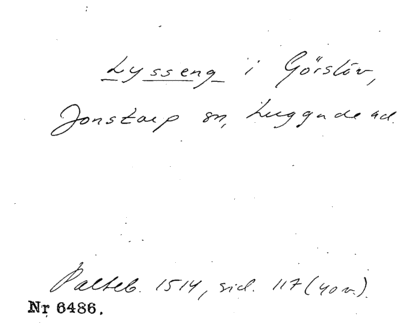 Lysseng i Görslöv,
Jonstorp sn, Luggude hd.
Palteb. 1514, sid. 117 (40 v.).
Nr 6486.